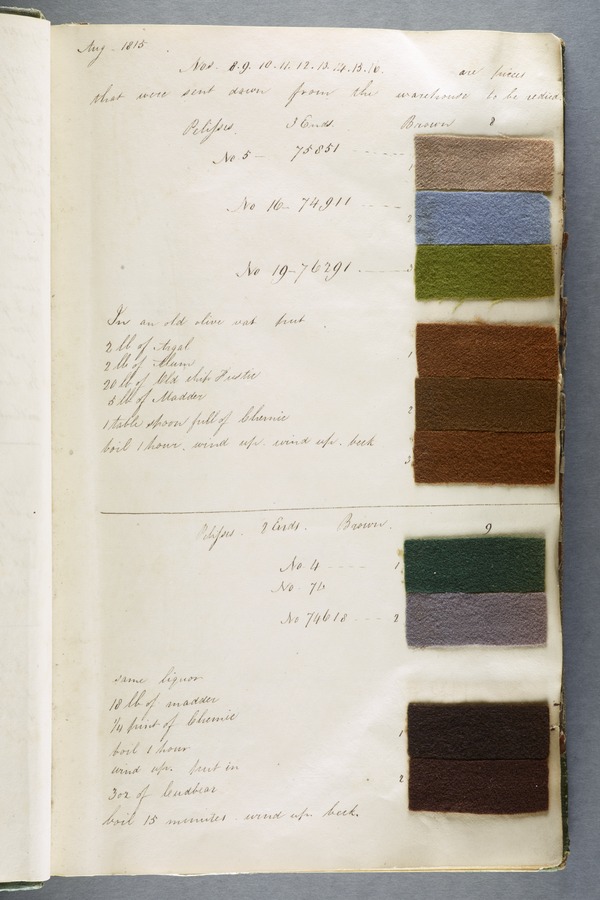 Aug. 1815.
Nos. 8.9.10.11.12.13.14.15.16. are pieces
that were sent down from the warehouse to be redied
Pelisses. 3 Ends. Brown 8
No 5 - 75851 1
No 16 - 74911 2
No 19 - 76291 3
In an old olive vat put
2 lb of Argal 1
2 lb of Alum
20 lb of Old chip Fustic
5 lb of Madder 2
1 table spoon full of Chemic
boil 1 hour. wind up. wind up. beck 3
Pelisses. 2 Ends. Brown. 9
No. 4 1
No. 76
No 74618 2
same liquor
18 lb of madder
1/4 pint of Chemic 1
boil 1 hour
wind up. put in 2
3 oz of Cudbear
boil 15 minutes. wind up. beck.